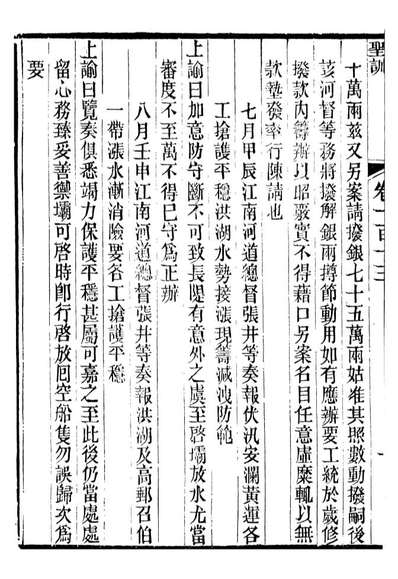 聖訓
卷一百一十三
十萬兩茲又另案請撥銀七十五萬兩姑准其照數動撥嗣後
該河督等務將撥解銀兩撙節動用如有應辦要工統於歲修
撥款內籌辦以昭覈實不得藉口另案名目任意虛糜輒以無
款墊發率行陳請也
七月甲辰江南河道總督張井等奏報伏汛安瀾黃運各
工搶護平穩洪湖水勢接漲現籌減洩防範
上諭曰加意防守斷不可致長隄有意外之虞至啓壩放水尤當
審度不至萬不得已守爲正辦
八月壬申江南河道總督張井等奏報洪湖及高郵召伯
一帶漲水漸消險要各工搶護平穩
上諭曰覽奏俱悉竭力保護平穩甚屬可嘉之至此後仍當處處
留心務臻妥善禦壩可啓時卽行啓放囘空船隻勿誤歸次爲
要